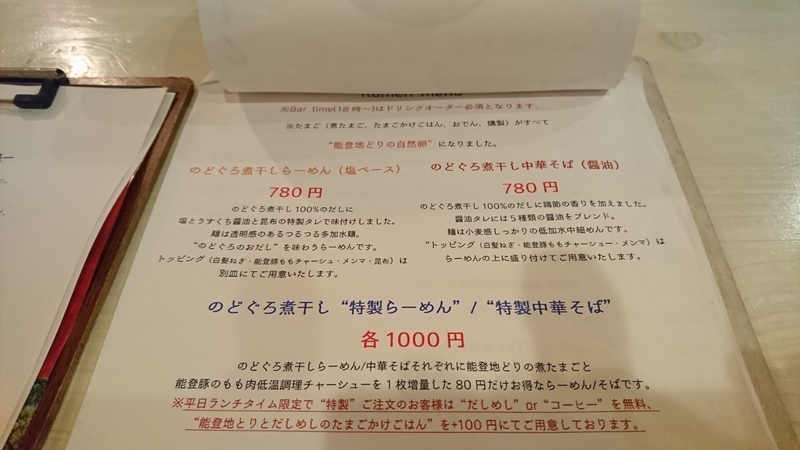 Ramen menu
※Bar time(18時〜)はドリンクオーダー必須となります。
※たまご（煮たまご、たまごかけごはん、おでん、燻製）がすべて
"能登地どりの自然卵" になりました。
のどぐろ煮干しらーめん（塩ベース）
780円
のどぐろ煮干し100%のだしに
塩とうすくち醤油と昆布の特製タレで味付けしました。
麺は透明感のあるつるつる多加水麺。
"のどぐろのおだし" を味わうらーめんです。
トッピング（白髪ねぎ・能登豚ももチャーシュ・メンマ・昆布）は
別皿にてご用意いたします。
のどぐろ煮干し中華そば（醤油）
780円
のどぐろ煮干し100%のだしに鶏節の香りを加えました。
醤油タレには5種類の醤油をブレンド。
麺は小麦感しっかりの低加水中細めんです。
"トッピング（白髪ねぎ・能登豚ももチャーシュー・メンマ）は
らーめんの上に盛り付けてご用意いたします。
のどぐろ煮干し "特製らーめん" / "特製中華そば"
各1000円
のどぐろ煮干しらーめん/中華そばそれぞれに能登地どりの煮たまごと
能登豚のもも肉低温調理チャーシューを1枚増量した80円だけお得ならーめん/そばです。
※平日ランチタイム限定で "特製" ご注文のお客様は "だしめし" or "コーヒー" を無料、
"能登地とりとだしめしのたまごかけごはん" を+100円にてご用意しております。